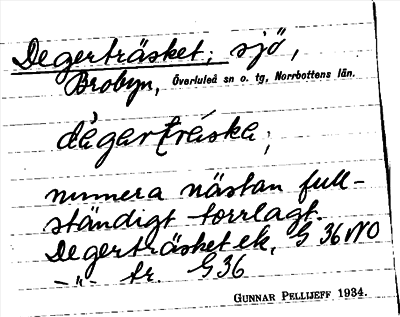 Degerträsket; sjö,
Brobyn, Överluleå sn o. tg, Norrbottens län.
dègərträ́skə;
numera nästan full-
ständigt torrlagt.
Degerträsket ek, G 36 NO
—„— tr. G36
GUNNAR PELLIJEFF 1934.